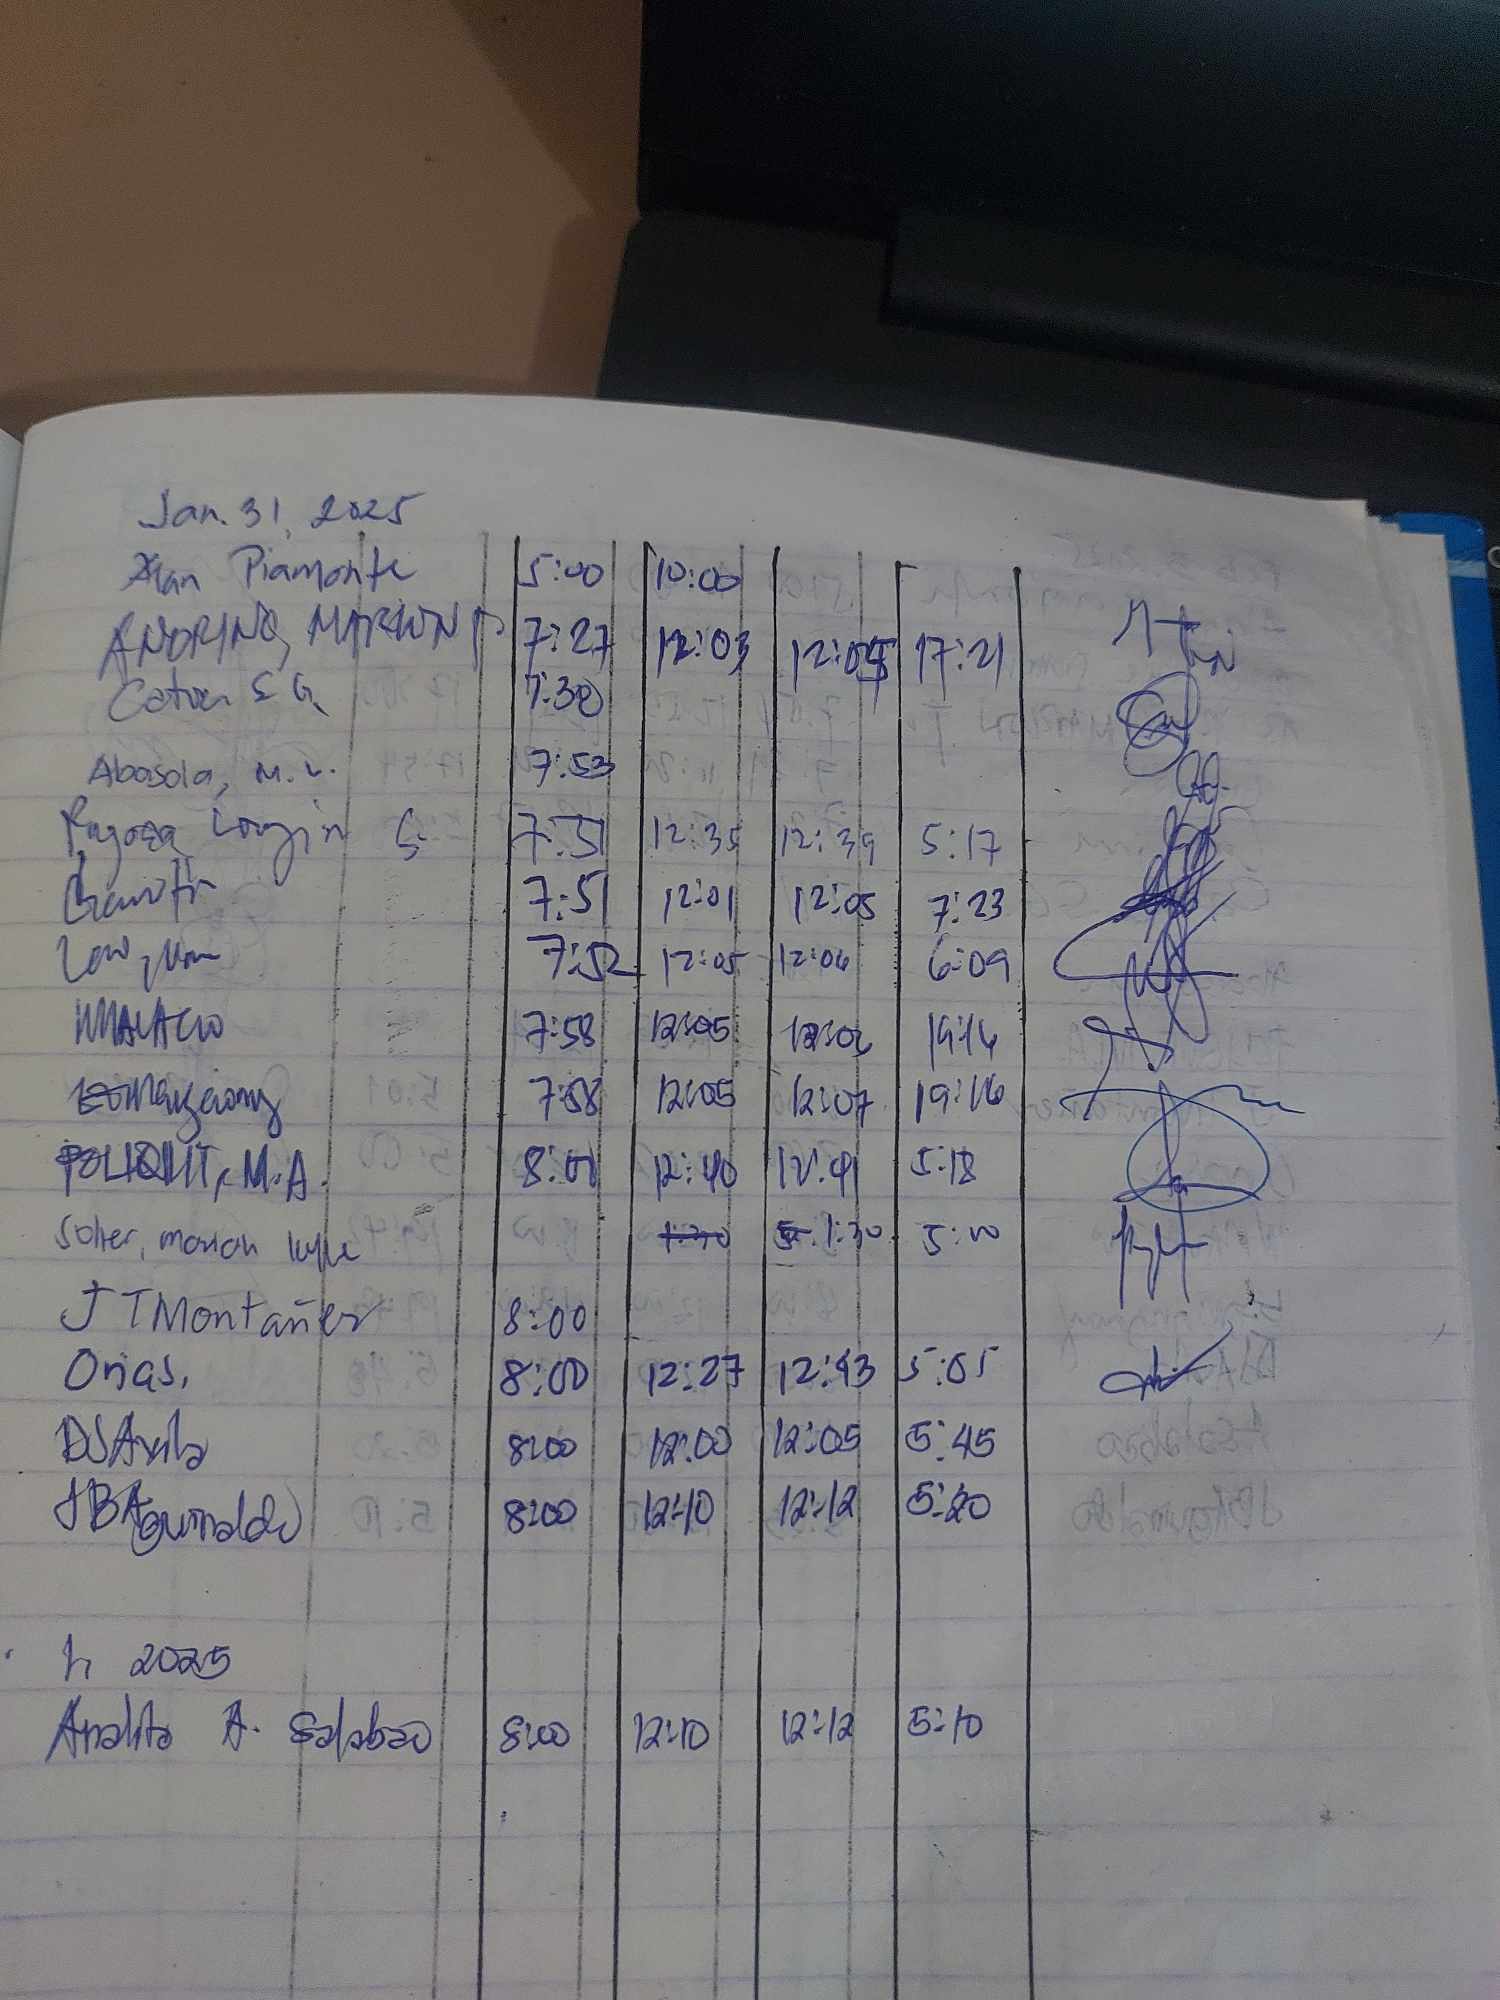 Jan. 31, 2025
Alan Piamonte 5:00 10:00
ANDRINO, MARLON P 7:27 12:03 12:05 17:21
Catven S G. 7:30
Abasola, M. L. 7:53
Ragoza Longin G. 7:51 12:35 12:39 5:17
7:51 12:01 12:05 7:23
7:52 12:05 12:06 6:09
7:58 12:05 12:06 19:16
7:58 12:05 12:07 19:16
POLIQUIT, M.A. 8:00 12:40 12:41 5:18
Solier, Marion Kyle 1:30 1:30 5:00
J T Montañez 8:00
Orias, 8:00 12:27 12:43 5:05
DJ Avila 8:00 12:00 12:05 5:45
JB Aguinaldo 8:00 12:10 12:12 5:20
2025
Analita A. Salabao 8:00 12:10 12:12 5:10